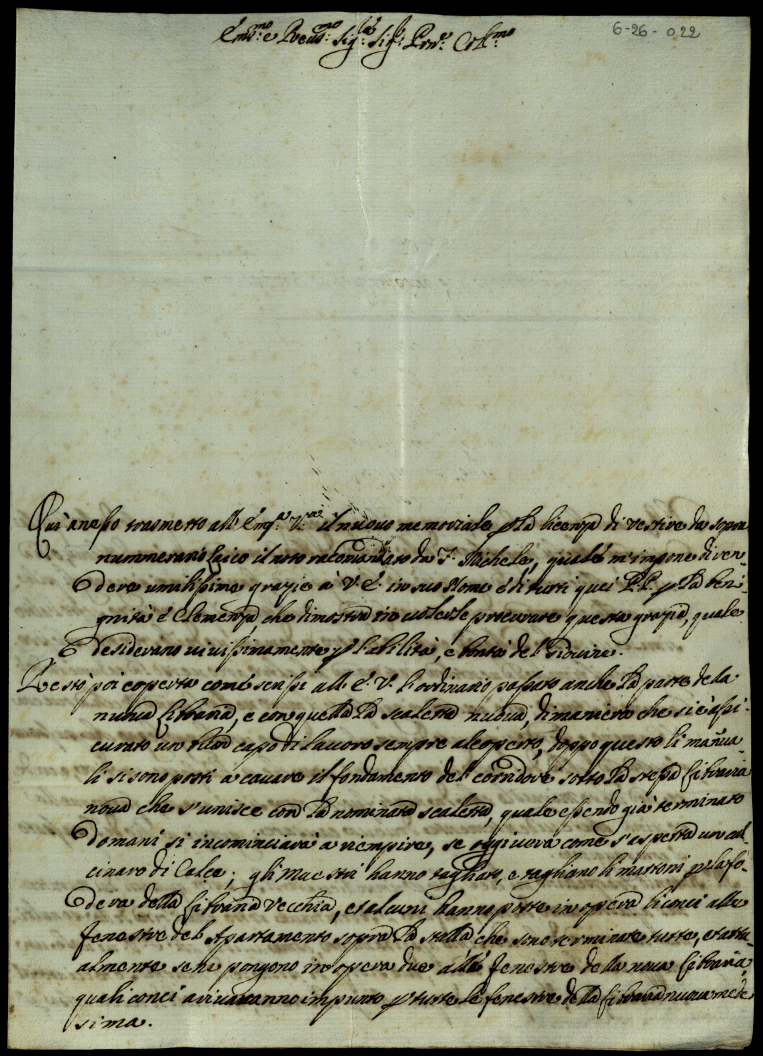 Em.mo e Reu.mo Sig.r Sig.r Pron.e Col.mo
6-26-022
Qui anesso trasmetto all' Em.a V.ra il nuouo memoriale p la licenza di vestire da sopra
nummerario Laico il noto racomandato da S. Michele, quale m'inpone di ren-
dere umilissime grazie à V. E. in suo Nome è di tutti quei P.P. p la beni-
gnità è Clemenza che dimostra in uolerle procurare questa grazia, quale
desiderano uiuissimamente p l'abilità, e bontà del Giouine.
Restò poi coperta come scrissi all' E. V. l'ordinario passato anche la parte de la
nuoua Libraria, e con quella la scaletta nuoua, di maniera che si è assi-
curato un altro capo di lauoro sempre al coperto, doppo questo li manua-
li si sono posti a cauare il fondamento del coridore sotto la stessa Libraria
noua che s'unisce con la nominata scaletta, quale essendo già terminato
domani si incominciarà a riempire, se oggi uerà come s'aspetta un cal-
cinaro di Calce; gli Maestri hanno tagliato, e tagliano li mattoni p la fo-
dera della Libraria Vecchia, et alcuni hanno poste in opera li conci alle
fenestre del Apartamento sopra la stalla che sono terminate tutte, et attu-
almente se ne pongono in opera due alle fenestre della noua Libraria,
quali conci ariuaranno impunto p tutte le fenestre della Libraria nuoua mede
sima.